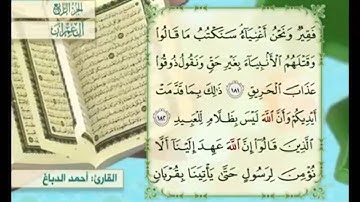 الجزء الرابع
آل عمران
فَقِيرٌ وَنَحْنُ أَغْنِيَاءُ سَنَكْتُبُ مَا قَالُوا
وَقَتْلَهُمُ الْأَنْبِيَاءَ بِغَيْرِ حَقٍّ وَنَقُولُ ذُوقُوا
عَذَابَ الْحَرِيقِ ١٨١ ذَٰلِكَ بِمَا قَدَّمَتْ
أَيْدِيكُمْ وَأَنَّ اللَّهَ لَيْسَ بِظَلَّامٍ لِلْعَبِيدِ ١٨٢
الَّذِينَ قَالُوا إِنَّ اللَّهَ عَهِدَ إِلَيْنَا أَلَّا
نُؤْمِنَ لِرَسُولٍ حَتَّىٰ يَأْتِيَنَا بِقُرْبَانٍ
القارئ: أحمد الدباغ